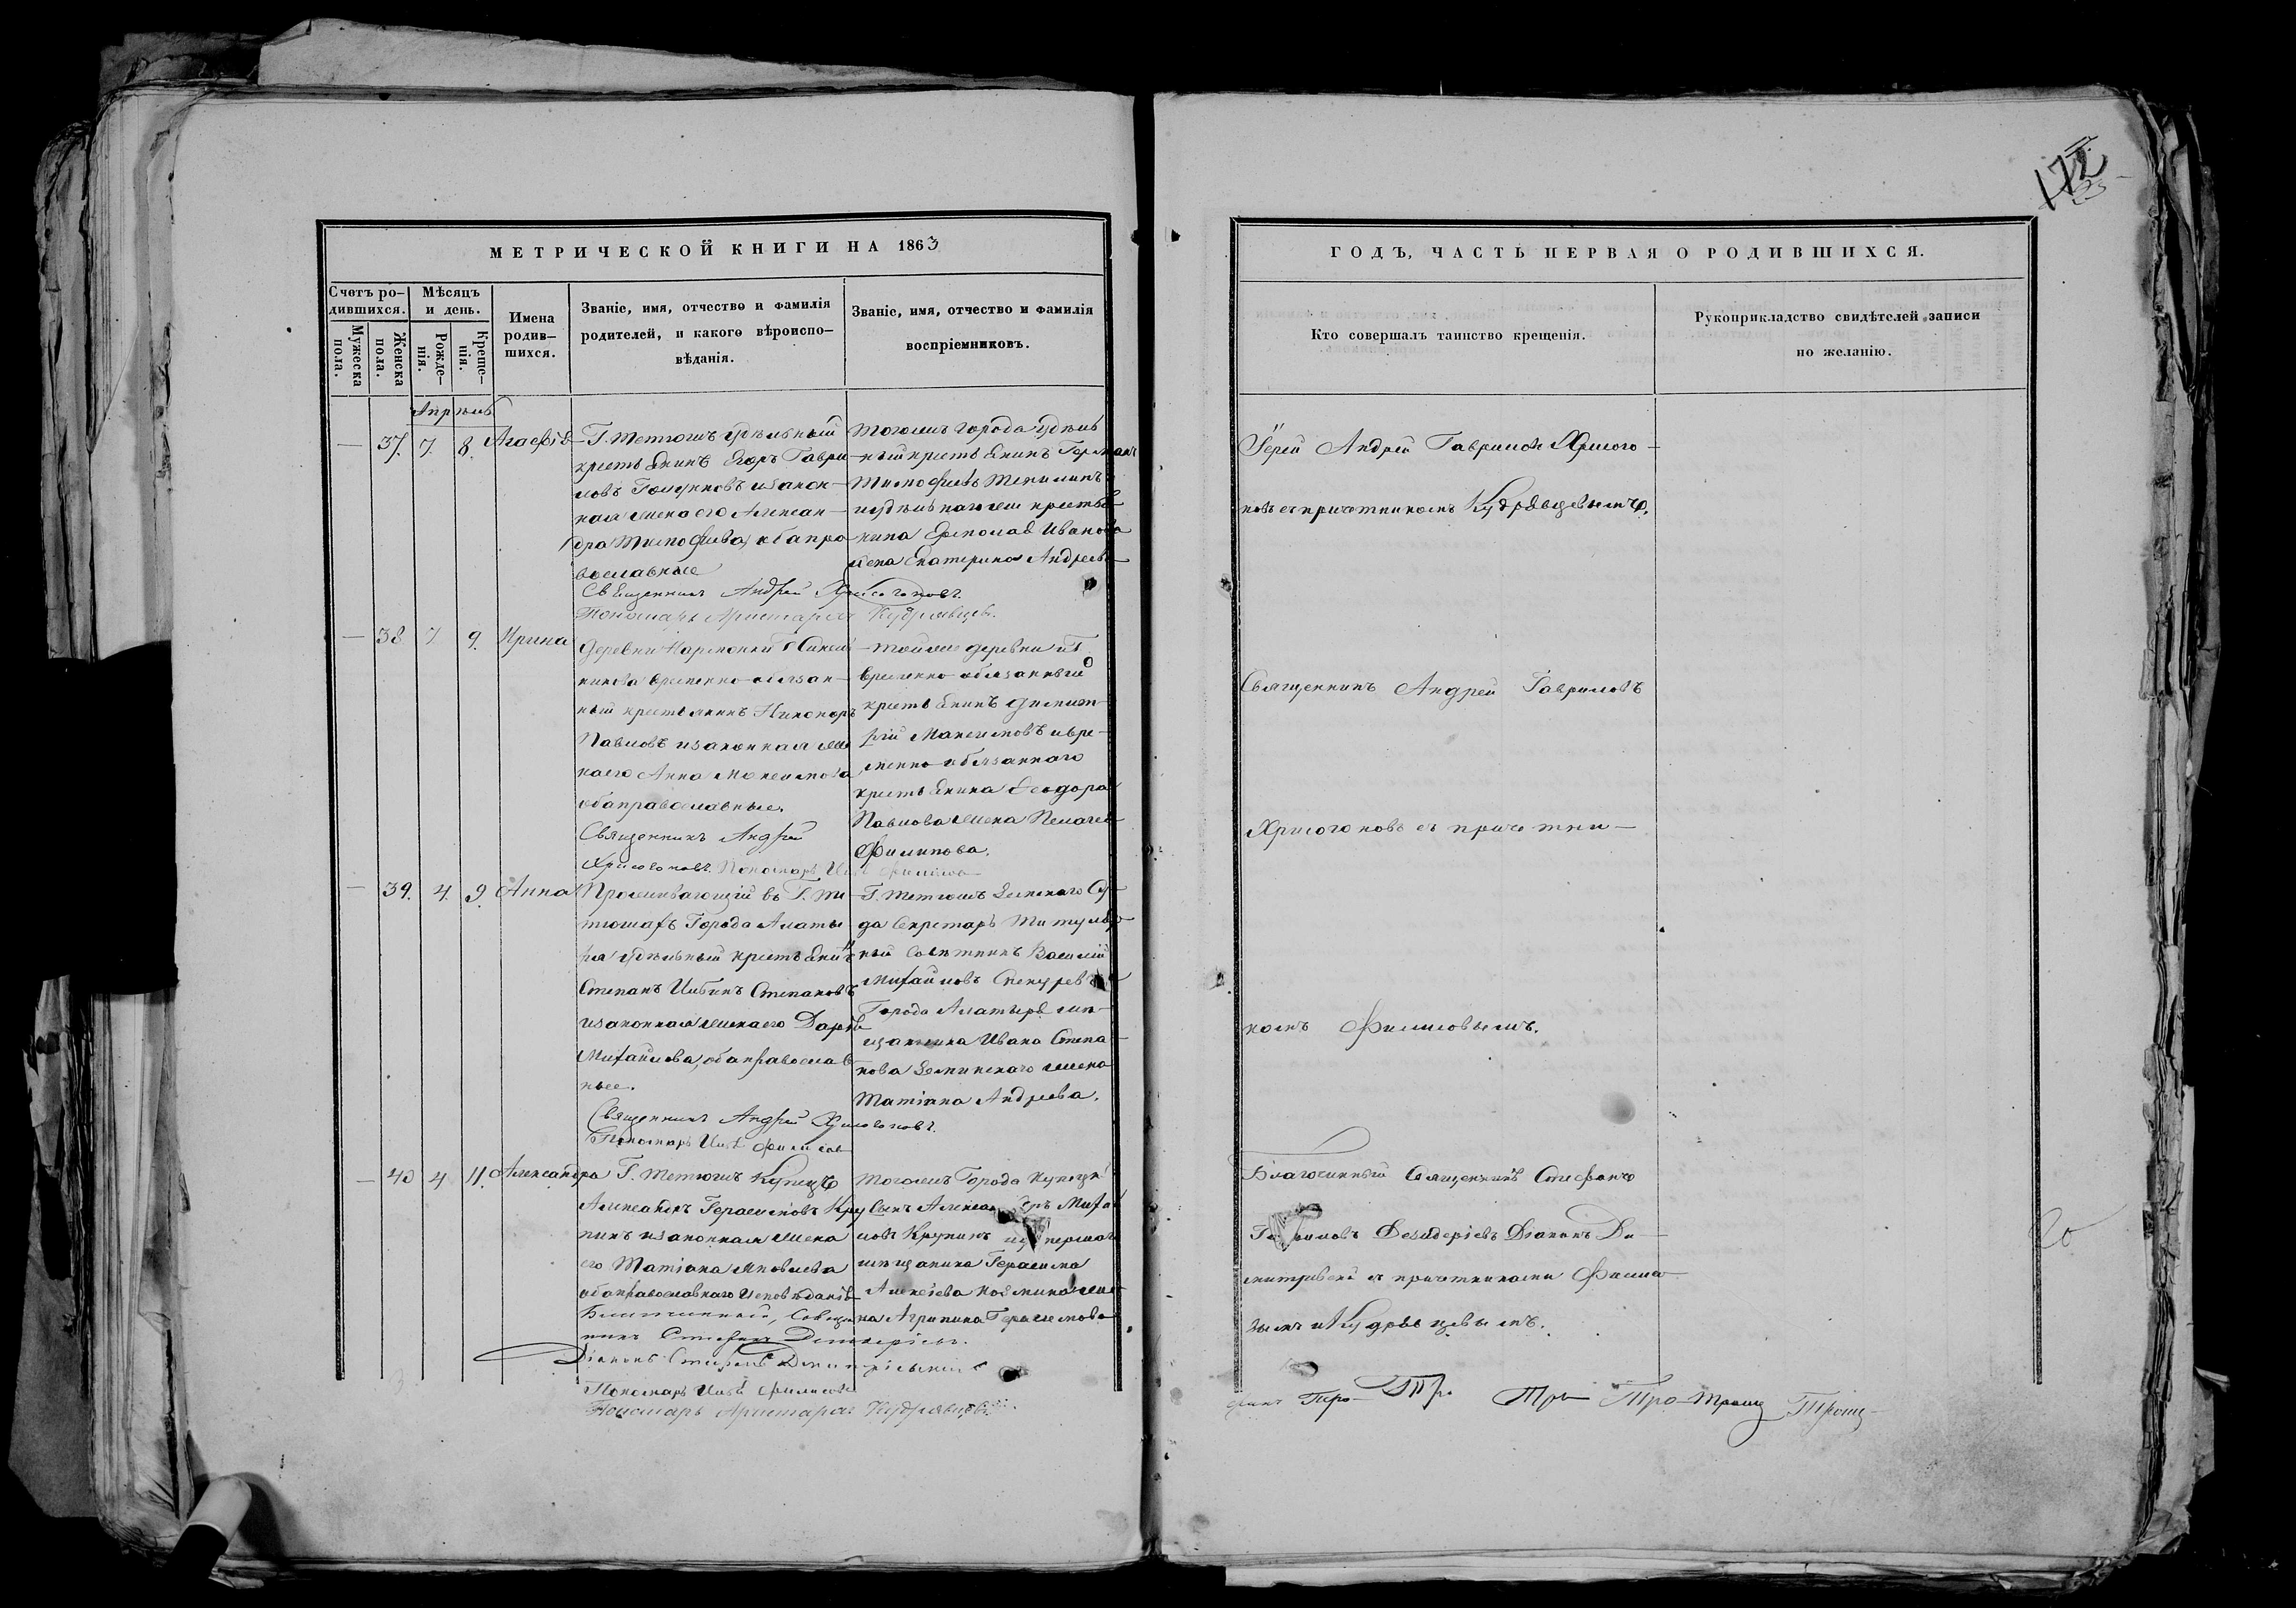 МЕТРИЧЕСКОЙ КНИГИ НА 1863
Счетъ ро-
дившихся.
Мужеска
пола.
Женска
пола.
Мѣсяцъ
и день.
Рожде-
нія.
Креще-
нія.
Имена
родив-
шихся.
Званіе, имя, отчество и фамилія
родителей, и какого вѣроиспо-
вѣданія.
Званіе, имя, отчество и фамилія
воспріемниковъ.
Апрѣль
— 37. 7. 8. Агафія
Г. Тетюшъ удѣльный
крестьянинъ Егоръ Гаври
ловъ изакон-
ная жена его Алексан-
дра Тимофѣева, оба пра
вославные
Священникъ Андрей Хрисогоновъ.
Пономарь Аристархъ Кудрявцевъ.
Тогожъ города удѣль
ный крестьянинъ Германъ
Тимофѣевъ
иудѣльнаго же крестья
нина Ермолая Иванова
жена Екатерина Андреева
— 38 7 9. Ирина
Деревни
временно-обязан-
ный крестьянинъ Никоноръ
Павловъ изаконная же
на его Анна Максимова
оба православные.
Священникъ Андрей
Хрисогоновъ. Пономарь Филисовъ
— Тойже деревни
временно обязанный
крестьянинъ Димит-
рій Максимовъ и вре-
менно-обязаннаго
крестьянина Феодора
Павлова жена Пелагея
Филипова.
— 39. 4. 9. Анна
Проживающій въ Г. Те
тюшахъ Города Алаты
ря удѣльный крестьянинъ
Степанъ Степановъ
изаконная жена его Дарья
Михайлова, оба православ
ные.
Священникъ Андрей Хрисогоновъ.
Пономарь Филисовъ
Г. Тетюшъ Земскаго Су
да Секретарь Титуляр
ный Совѣтникъ Василій
Михайловъ
Города Алатыря мѣ-
щанина Ивана Степа
нова жена
Татіана Андреева.
— 40 4 11. Александра
Г. Тетюшъ Купецъ
Александръ Герасимовъ Кру
пинъ изаконная жена
его Татіана Яковлева
оба православнаго исповѣданія
Благочинный, Священ
никъ Стефанъ Дезидеріевъ.
Діаконъ
Пономарь Филисовъ
Пономарь Аристархъ Кудрявцевъ.
Тогожъ Города Купецкій
Сынъ Александръ Михай
ловъ Крупинъ
мѣщанина Герасима
Алексіева же
на Агрипина Герасимова
ГОДЪ, ЧАСТЬ ПЕРВАЯ О РОДИВШИХСЯ.
Кто совершалъ таинство крещенія.
Рукоприкладство свидѣтелей записи
по желанію.
172
Іерей Андрей Гавриловъ Хрисого-
новъ съ причетникомъ Кудрявцевымъ.
Священникъ Андрей Гавриловъ
Хрисогоновъ съ причетни-
комъ Филисовымъ.
Благочинный Священникъ Стефанъ
Дезидеріевъ Діаконъ Ди-
митріевскій съ причетниками Филисо-
вымъ и Кудрявцевымъ.
20
Тро- Тр. Тро Тро- Троиц Троиц-